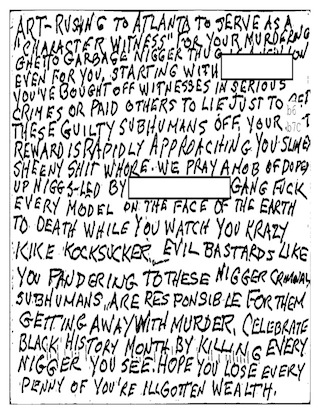 ART-RUSHING TO ATLANTA TO SERVE AS A
"CHARACTER WITNESS" FOR YOUR MURDERING
GHETTO GARBAGE NIGGER THUG
EVEN FOR YOU, STARTING WITH
YOU'VE BOUGHT OFF WITNESSES IN SERIOUS
CRIMES OR PAID OTHERS TO LIE JUST TO GET
THESE GUILTY SUBHUMANS OFF. YOUR
REWARD IS RAPIDLY APPROACHING YOU SLIMEY
SHEENY SHIT WHORE. WE PRAY A MOB OF DOPED
UP NIGGS-LED BY GANG FUCK
EVERY MODEL ON THE FACE OF THE EARTH
TO DEATH WHILE YOU WATCH YOU KRAZY
KIKE KOCKSUCKER. EVIL BASTARDS LIKE
YOU PANDERING TO THESE NIGGER CRIMINAL
SUBHUMANS, ARE RESPONSIBLE FOR THEM
GETTING AWAY WITH MURDER. CELEBRATE
BLACK HISTORY MONTH BY KILLING EVERY
NIGGER YOU SEE. HOPE YOU LOSE EVERY
PENNY OF YOU'RE ILLGOTTEN WEALTH.